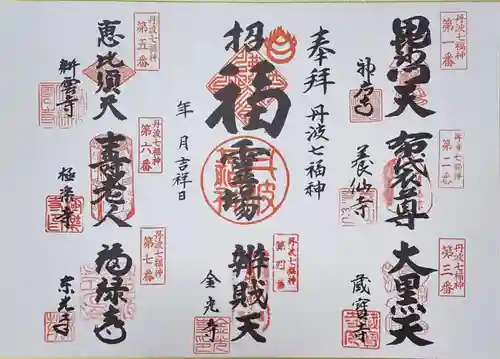 丹波七福神
第一番
毘沙門天
神宮寺
丹波七福神
第二番
布袋尊
養仙寺
丹波七福神
第三番
大黒天
蔵寶寺
奉拝 丹波七福神
招福霊場
年 月 吉祥日
丹波七福神
第四番
辨財天
金光寺
丹波七福神
第五番
恵比須天
耕雲寺
丹波七福神
第六番
寿老人
極楽寺
丹波七福神
第七番
福禄寿
東光寺